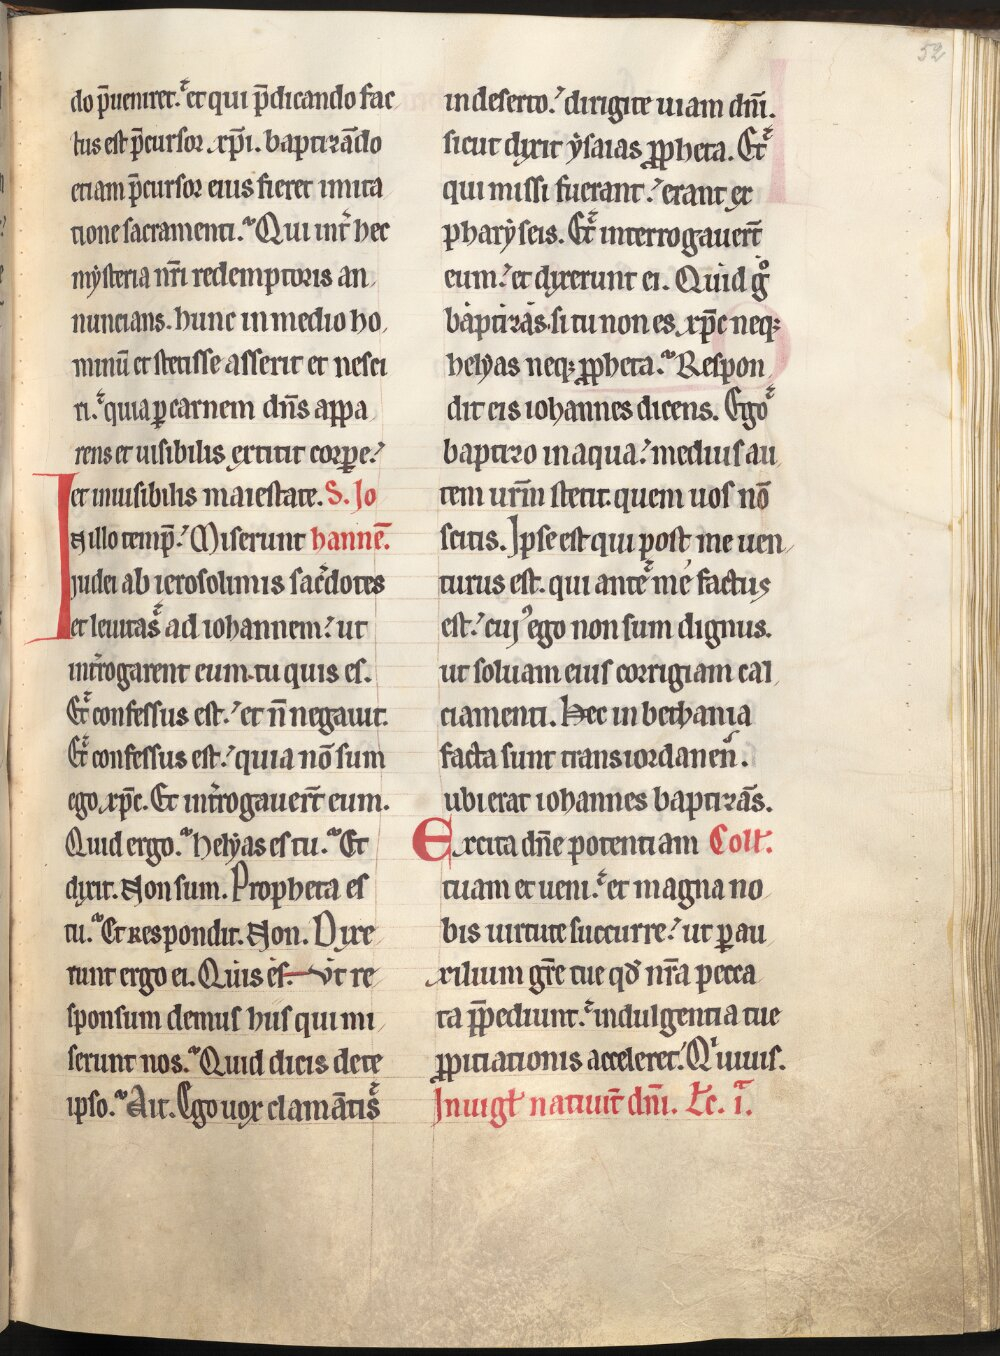 52
do p̄ueniret. et qui p̄dicando fac
tus est p̄cursor xp̄i. baptizādo
etiam p̄cursor eius fieret imita
tione sacramenti. Qui int̄ hec
mẏsteria nr̄i redemptoris an
nuncians. hunc in medio ho
minū et stetisse asserit et nesci
ri. quia ꝑ carnem dn̄s appa
rens et uisibilis extitit corꝑe.
et inuisibilis maiestate. S. Jo
N illo temp̄. Miserunt hannē.
Iudei ab ierosolimis sac̄dotes
et leuitas ad iohannem. ut
int̄rogarent eum. tu quis es.
Et confessus est. et n̄ negauit.
Et confessus est. quia nō sum
ego xp̄c. Et int̄rogauer̄t eum.
Quid ergo. helẏas es tu. Et
dixit. Non sum. Propheta es
tu. Et respondit. Non. Dixe
runt ergo ei. Quis es. Vt re
sponsum demus hiis qui mi
serunt nos. Quid dicis de te
ipso. Ait. Ego uox clamātis
in deserto. dirigite uiam dn̄i.
sicut dixit ẏsaias ꝓpheta. Et
qui missi fuerant. erant ex
pharẏseis. Et interrogauer̄t
eum. et dixerunt ei. Quid gͦ
baptizas. si tu non es xp̄c neqꝫ
helyas neqꝫ ꝓpheta. Respon
dit eis iohannes dicens. Ego
baptizo in aqua. medius au
tem ur̄m stetit. quem uos nō
scitis. Ipse est qui post me uen
turus est. qui ante me factus
est. cuiꝰ ego non sum dignus.
ut soluam eius corrigiam cal
ciamenti. Hec in bethania
facta sunt trans iordanen̄.
ubi erat iohannes baptizās.
Excita dn̄e potentiam Coll̄.
tuam et ueni. et magna no
bis uirtute succurre. ut ꝑ au
xilium gr̄e tue qd̄ nr̄a pecca
ta p̄pediunt. indulgentia tue
ꝓpitiationis acceleret. Qui uiuis.
In uigl̄ natiuit̄ dn̄i. Lc̄. i.